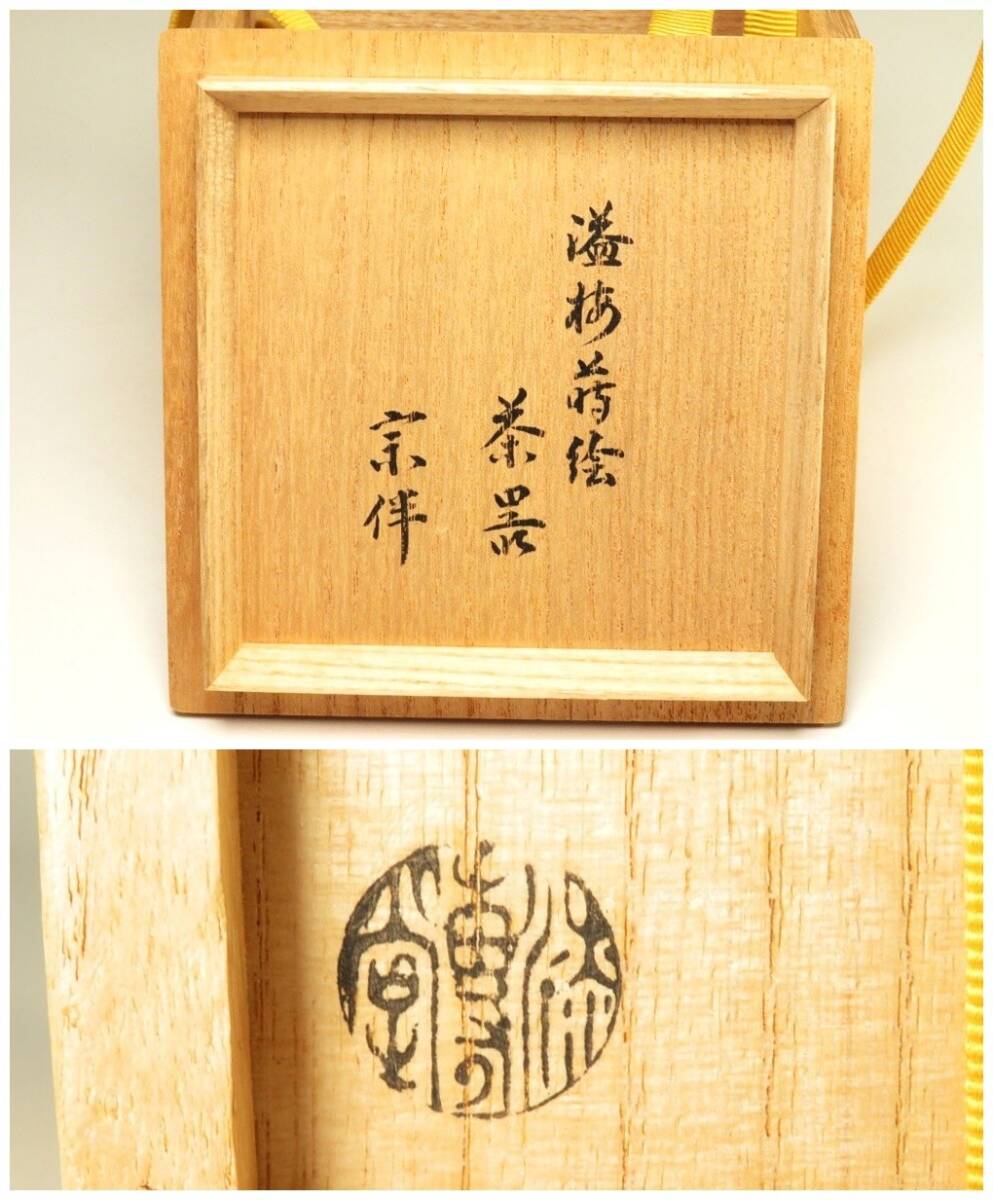 溢梅蒔絵
茶器
宗伴